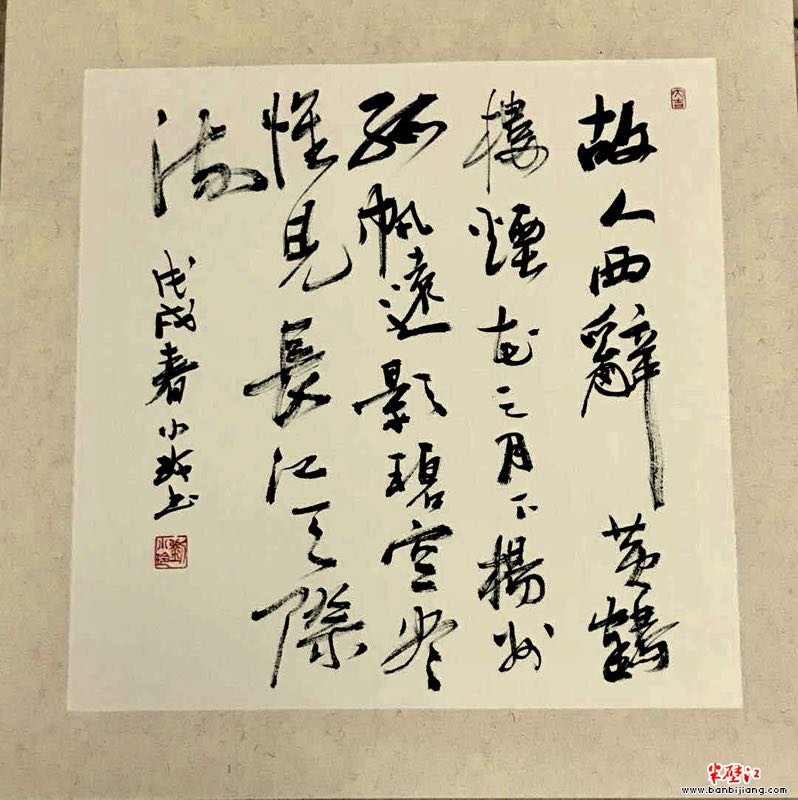 故人西辭黄鶴
樓煙花三月下楊州
孤帆遠影碧空尽
惟見長江天際
流
戊戌春小玲书
大吉
半壁江
www.banbijiang.com